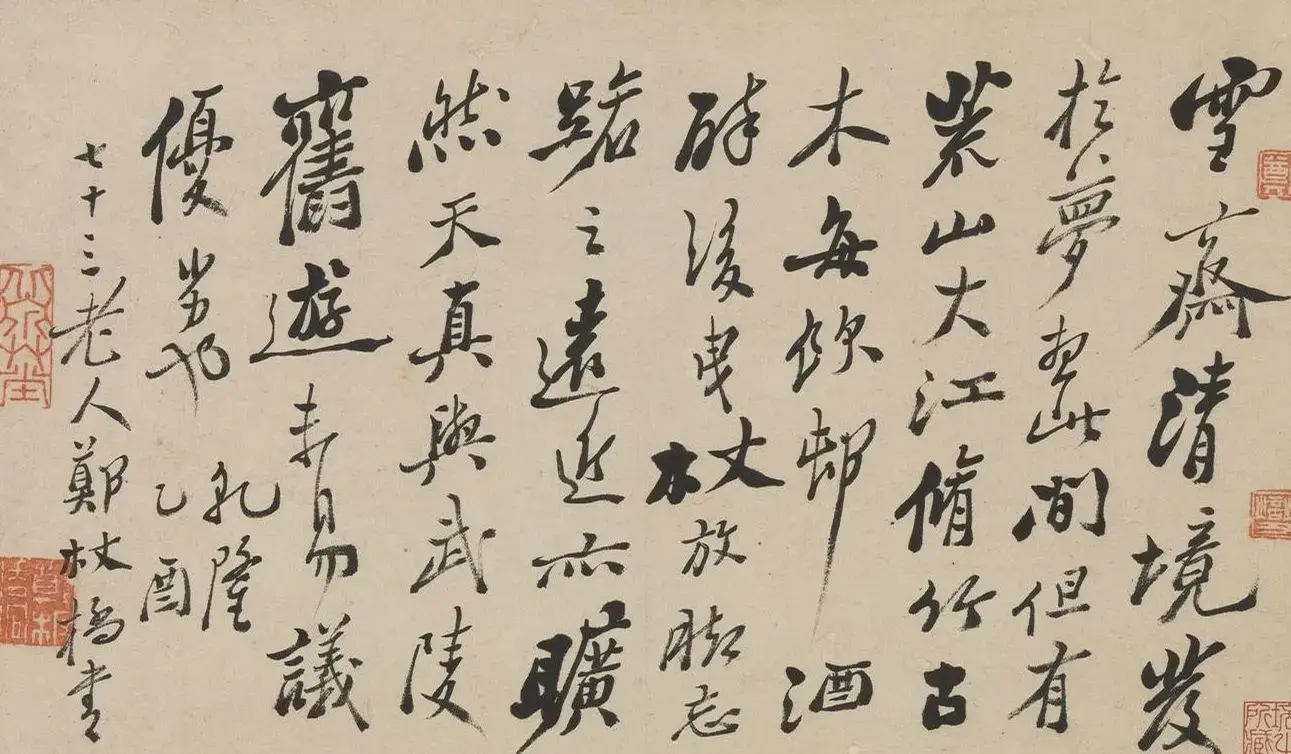 雪齋清境發
於夢想此間但有
荒山大江脩竹古
木每飲邨酒
醉後曳杖放腳忘
路之遠近亦曠
然天真與武陵
舊遊未易議
優劣也乾隆
乙酉
七十三老人鄭板橋書